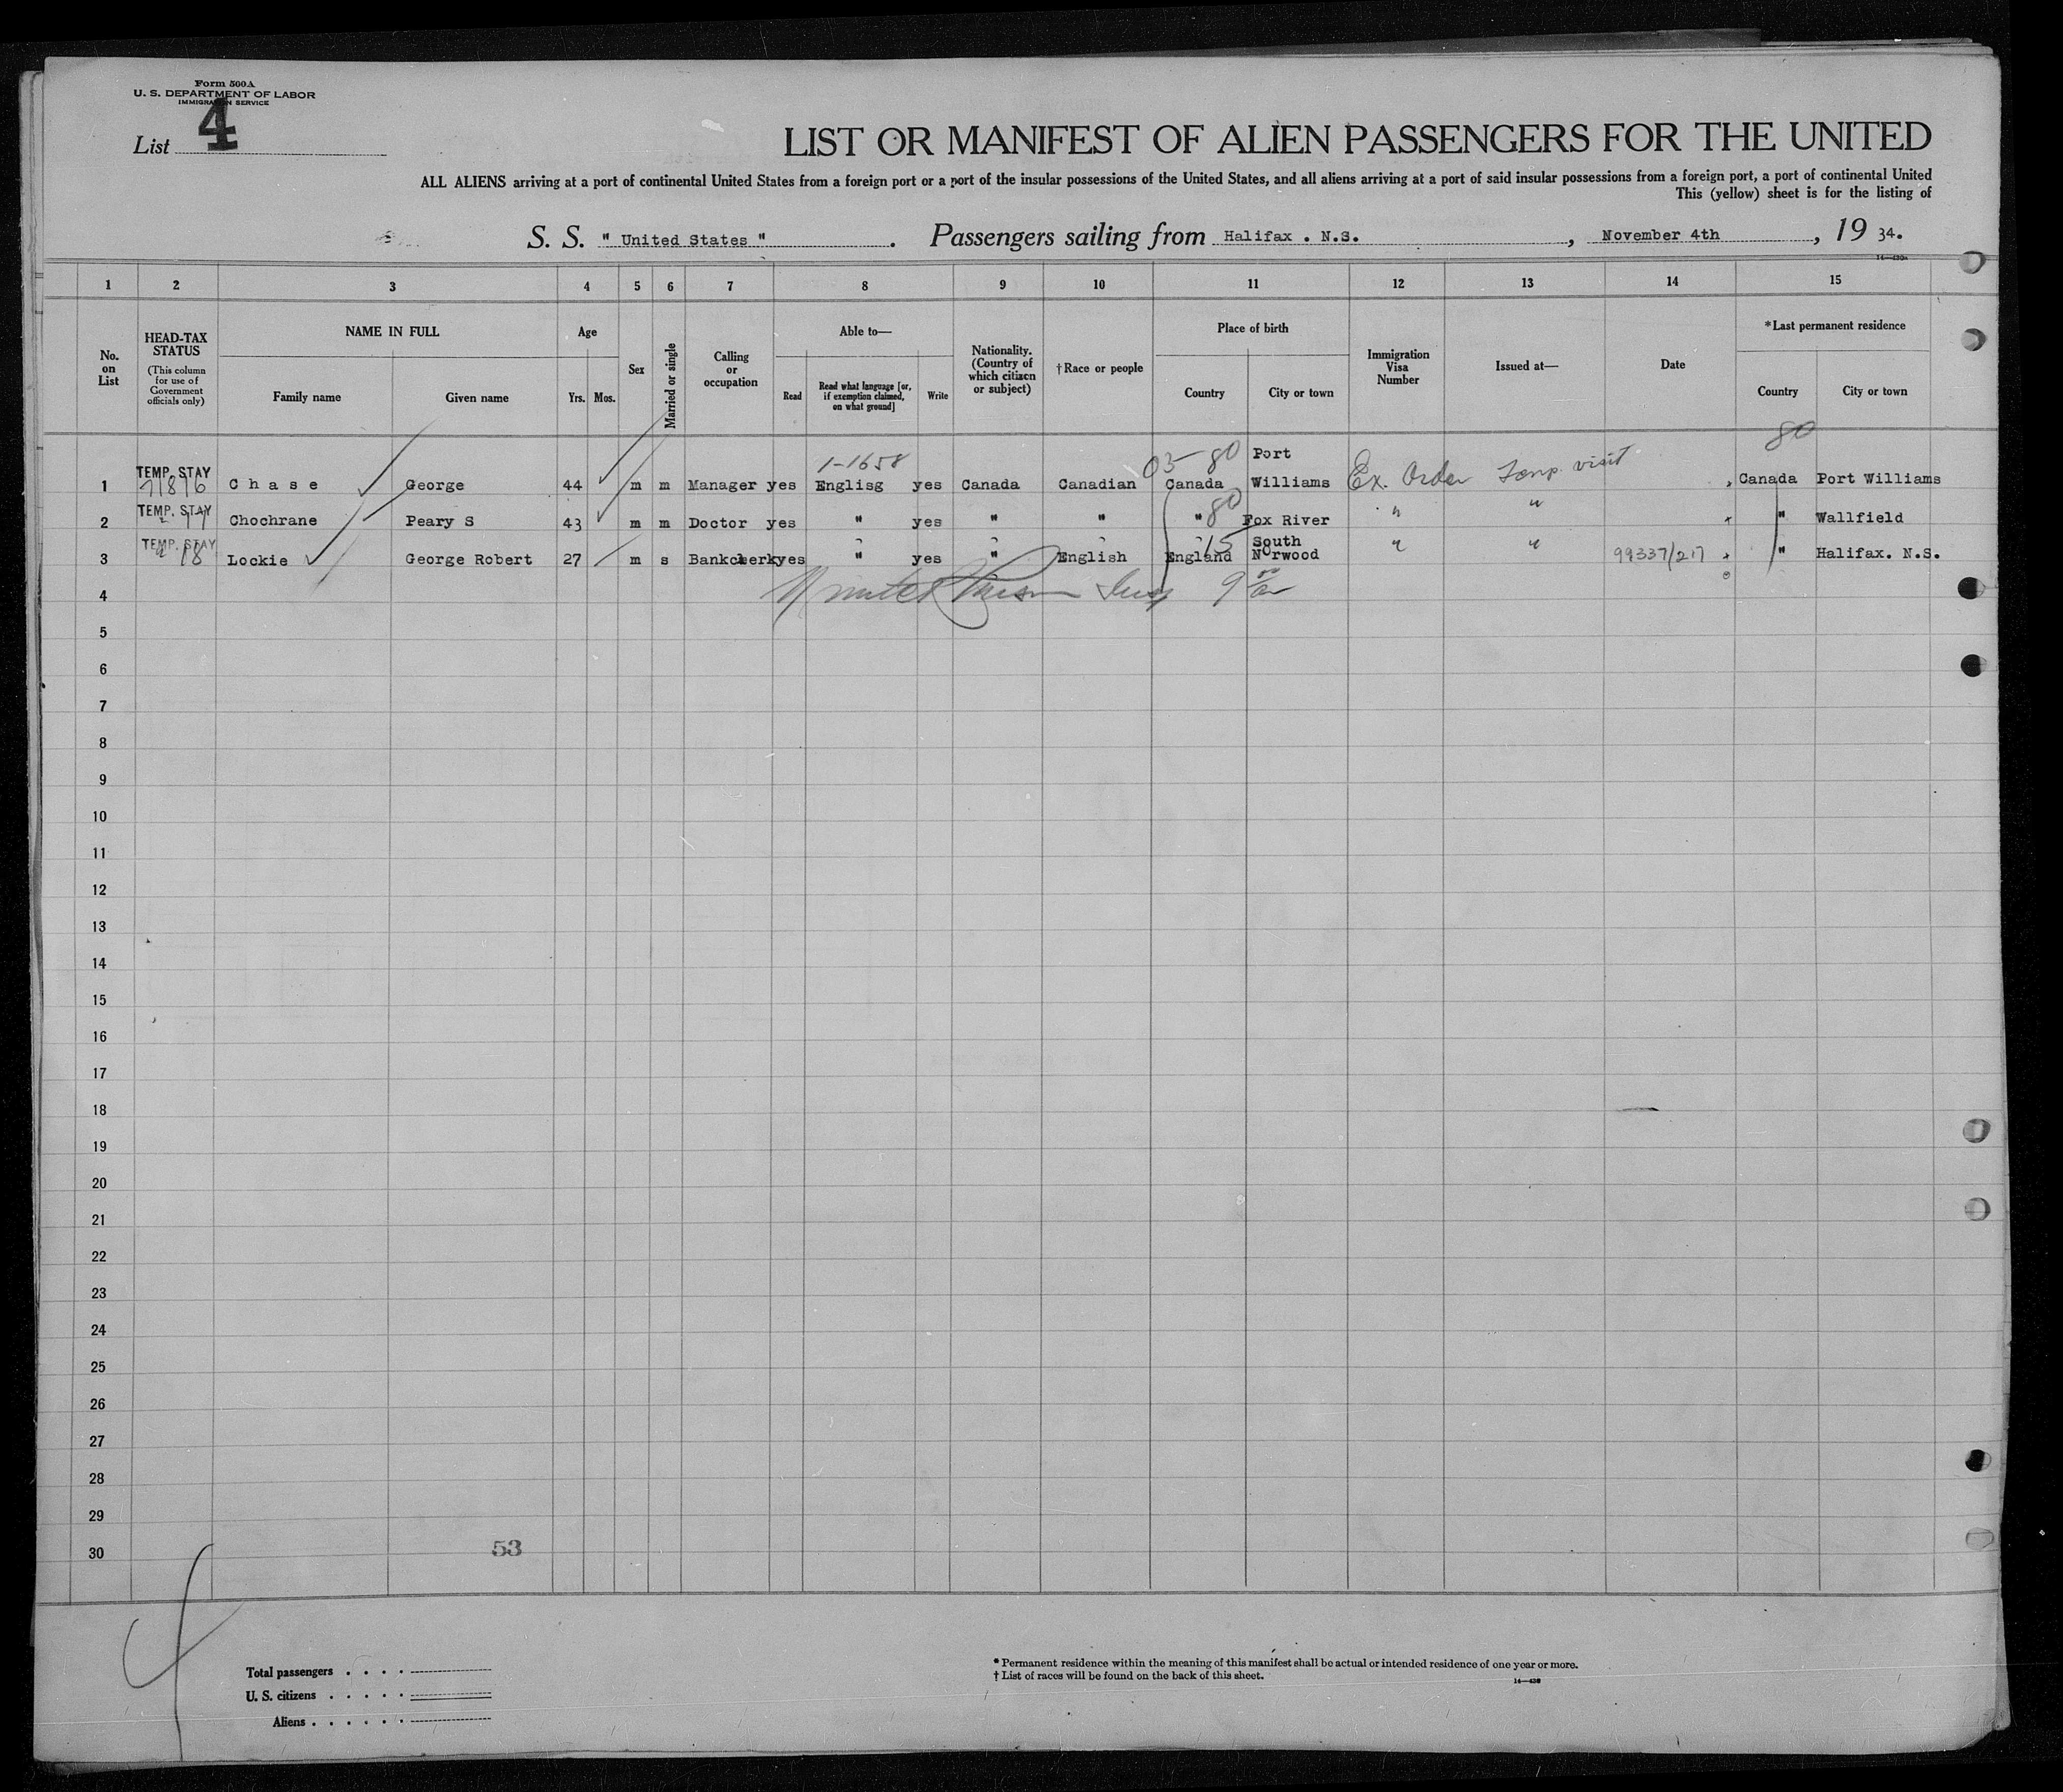 Form 500A
U. S. DEPARTMENT OF LABOR
IMMIGRATION SERVICE
List 4
LIST OR MANIFEST OF ALIEN PASSENGERS FOR THE UNITED
ALL ALIENS arriving at a port of continental United States from a foreign port or a port of the insular possessions of the United States, and all aliens arriving at a port of said insular possessions from a foreign port, a port of continental United
This (yellow) sheet is for the listing of
S. S. " United States ". Passengers sailing from Halifax . N.S., November 4th, 19 34.
1 2 3 4 5 6 7 8 9 10 11 12 13 14 15
No. on List
HEAD-TAX STATUS
(This column for use of Government officials only)
NAME IN FULL
Family name
Given name
Age
Yrs.
Mos.
Sex
Married or single
Calling or occupation
Able to—
Read
Read what language [or, if exemption claimed, on what ground]
Write
Nationality. (Country of which citizen or subject)
†Race or people
Place of birth
Country
City or town
Immigration Visa Number
Issued at—
Date
*Last permanent residence
Country
City or town
80
1-1658 03- 80 Port
1 TEMP. STAY 71816 Chase George 44 m m Manager yes Englisg yes Canada Canadian Canada Williams Ex. Order Temp. visit Canada Port Williams
2 TEMP. STAY " 17 Chochrane Peary S 43 m m Doctor yes " yes " " " 80 Fox River " " " Wallfield
15 South
3 TEMP. STAY " 18 Lockie George Robert 27 m s Bankclerk yes " yes " English England Norwood " " 99337/217 " Halifax. N.S.
4
5
6
7
8
9
10
11
12
13
14
15
16
17
18
19
20
21
22
23
24
25
26
27
28
29
30
53
Total passengers . . . .
U. S. citizens . . . . .
Aliens . . . . . .
* Permanent residence within the meaning of this manifest shall be actual or intended residence of one year or more.
† List of races will be found on the back of this sheet.